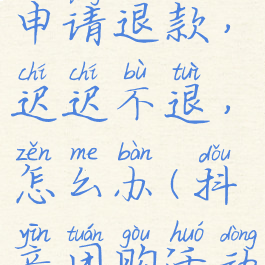 申请退款，
chí chí bù tuì
迟迟不退，
zěn me bàn dǒu
怎么办(抖
yīn tuán gòu huó dòng
音团购活动